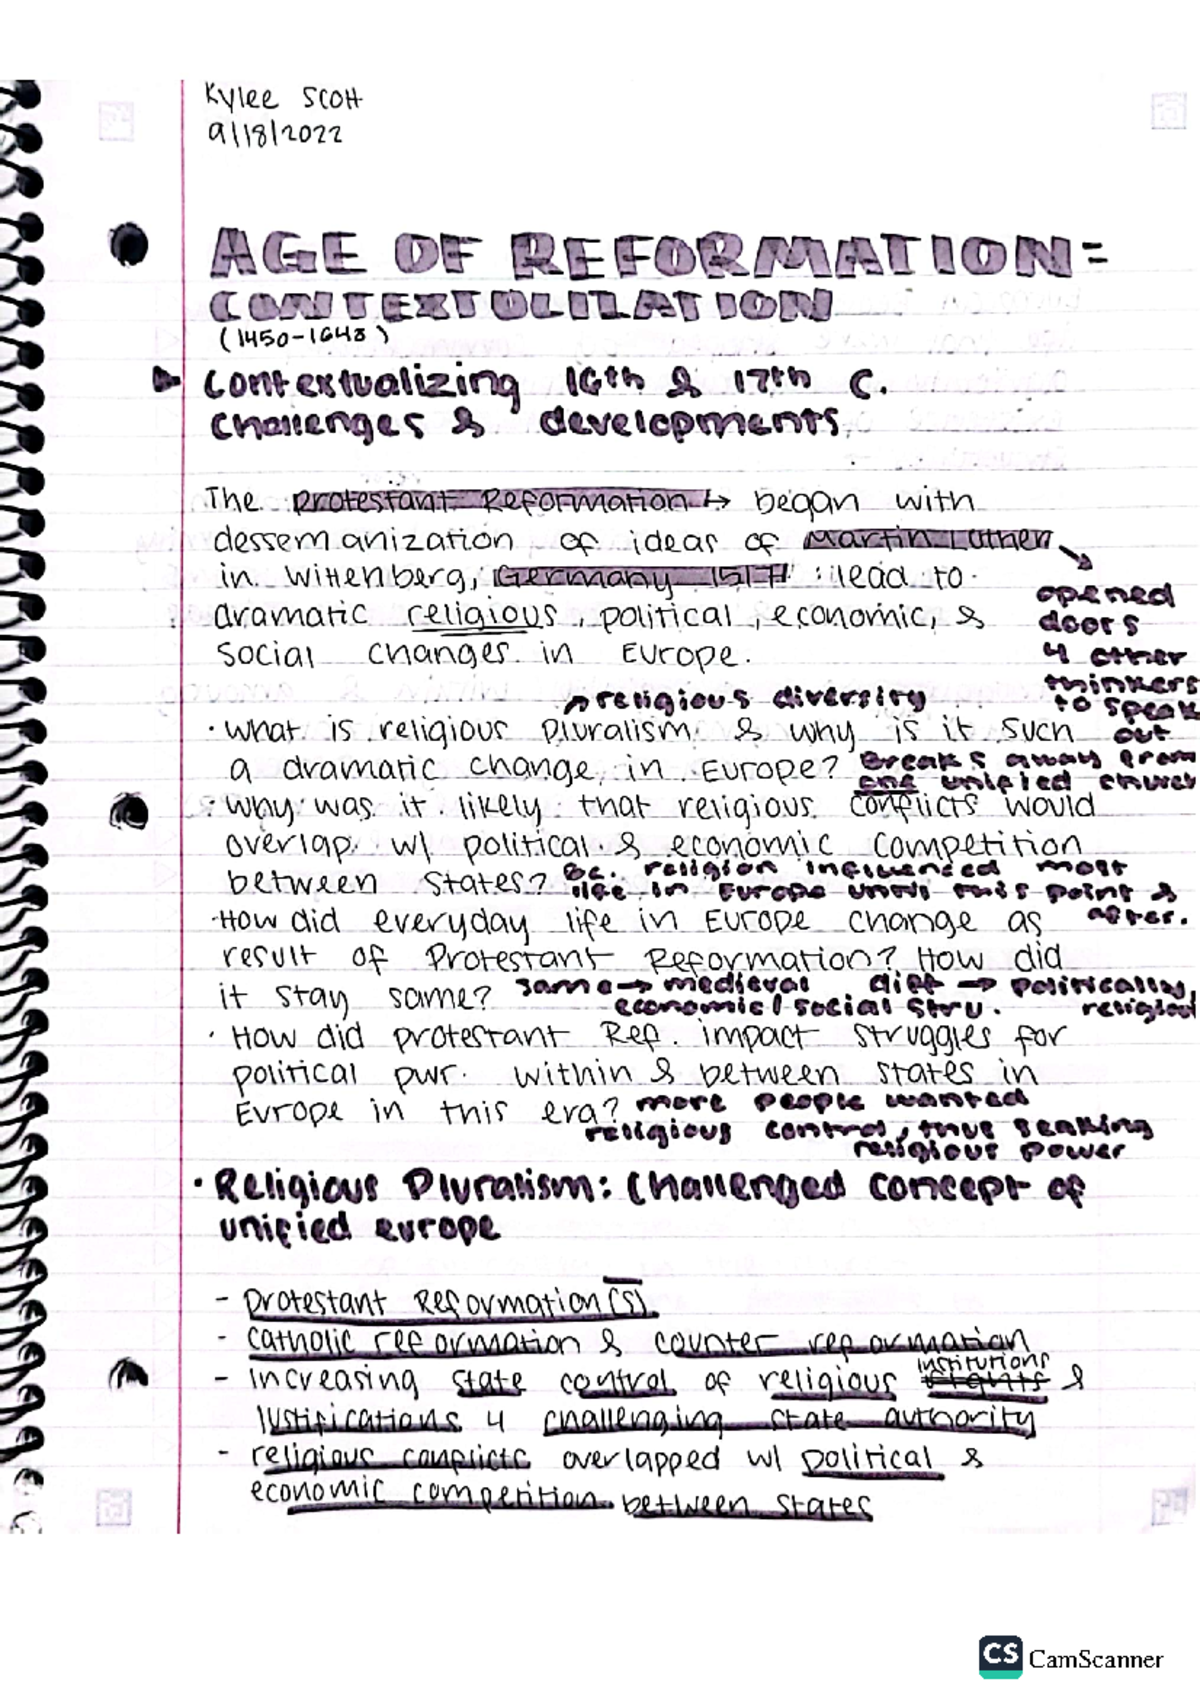 Kylee Scott
9/18/2022
AGE OF REFORMATION:
CONTEXTULIZATION
(1450-1648)
Contextualizing 16th & 17th C.
Challenges & developments.
The Protestant Reformation ↳ began with
dessemanization of ideas of Martin Luther
in Wittenberg, Germany 1517 : lead to
dramatic religious, political, economic, &
social changes in Europe.
opened
doors
4 other
thinkers
to speak
out
religious diversity
· What is religious pluralism & why is it such
a dramatic change in Europe? Breaks away from
one unified church
· Why was it likely that religious conflicts would
overlap w/ political & economic competition
between states? Bc. religion influenced most
life in Europe until this point &
after.
· How did everyday life in Europe change as
result of Protestant Reformation? How did
it stay same? same → medieval diff → politically,
economic/social stru. religion
· How did protestant Ref. impact struggles for
political pwr. within & between states in
Europe in this era? more people wanted
religious control, thus seaking
religious power
· Religious Pluralism: Challenged concept of
unified europe
- Protestant Reformation(s)
- Catholic reformation & counter reformation
- Increasing state control of religious institutions &
justifications 4 challenging state authority
- religious conflicts overlapped w/ political &
economic competition between states
CS CamScanner